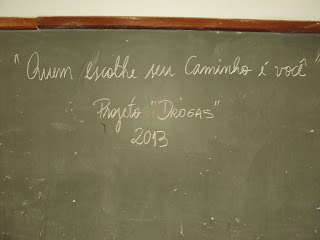 "Quem escolhe seu Caminho é você"
Projeto "DROGAS"
2013